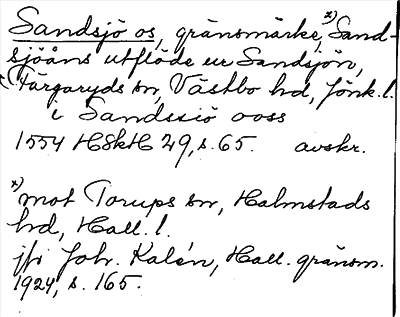 Sandsjö os, gränsmärke, x) Sand-
sjöåns utflöde ur Sandsjön,
Färgaryds sn, Västbo hd, Jönk. l.
i Sandssiö ooss
1554 HSkH 29, s. 65. avskr.
x) mot Torups sn, Halmstads
hd, Hall. l.
jfr Joh. Kalén, Hall. gränsm.
1924, s. 165.